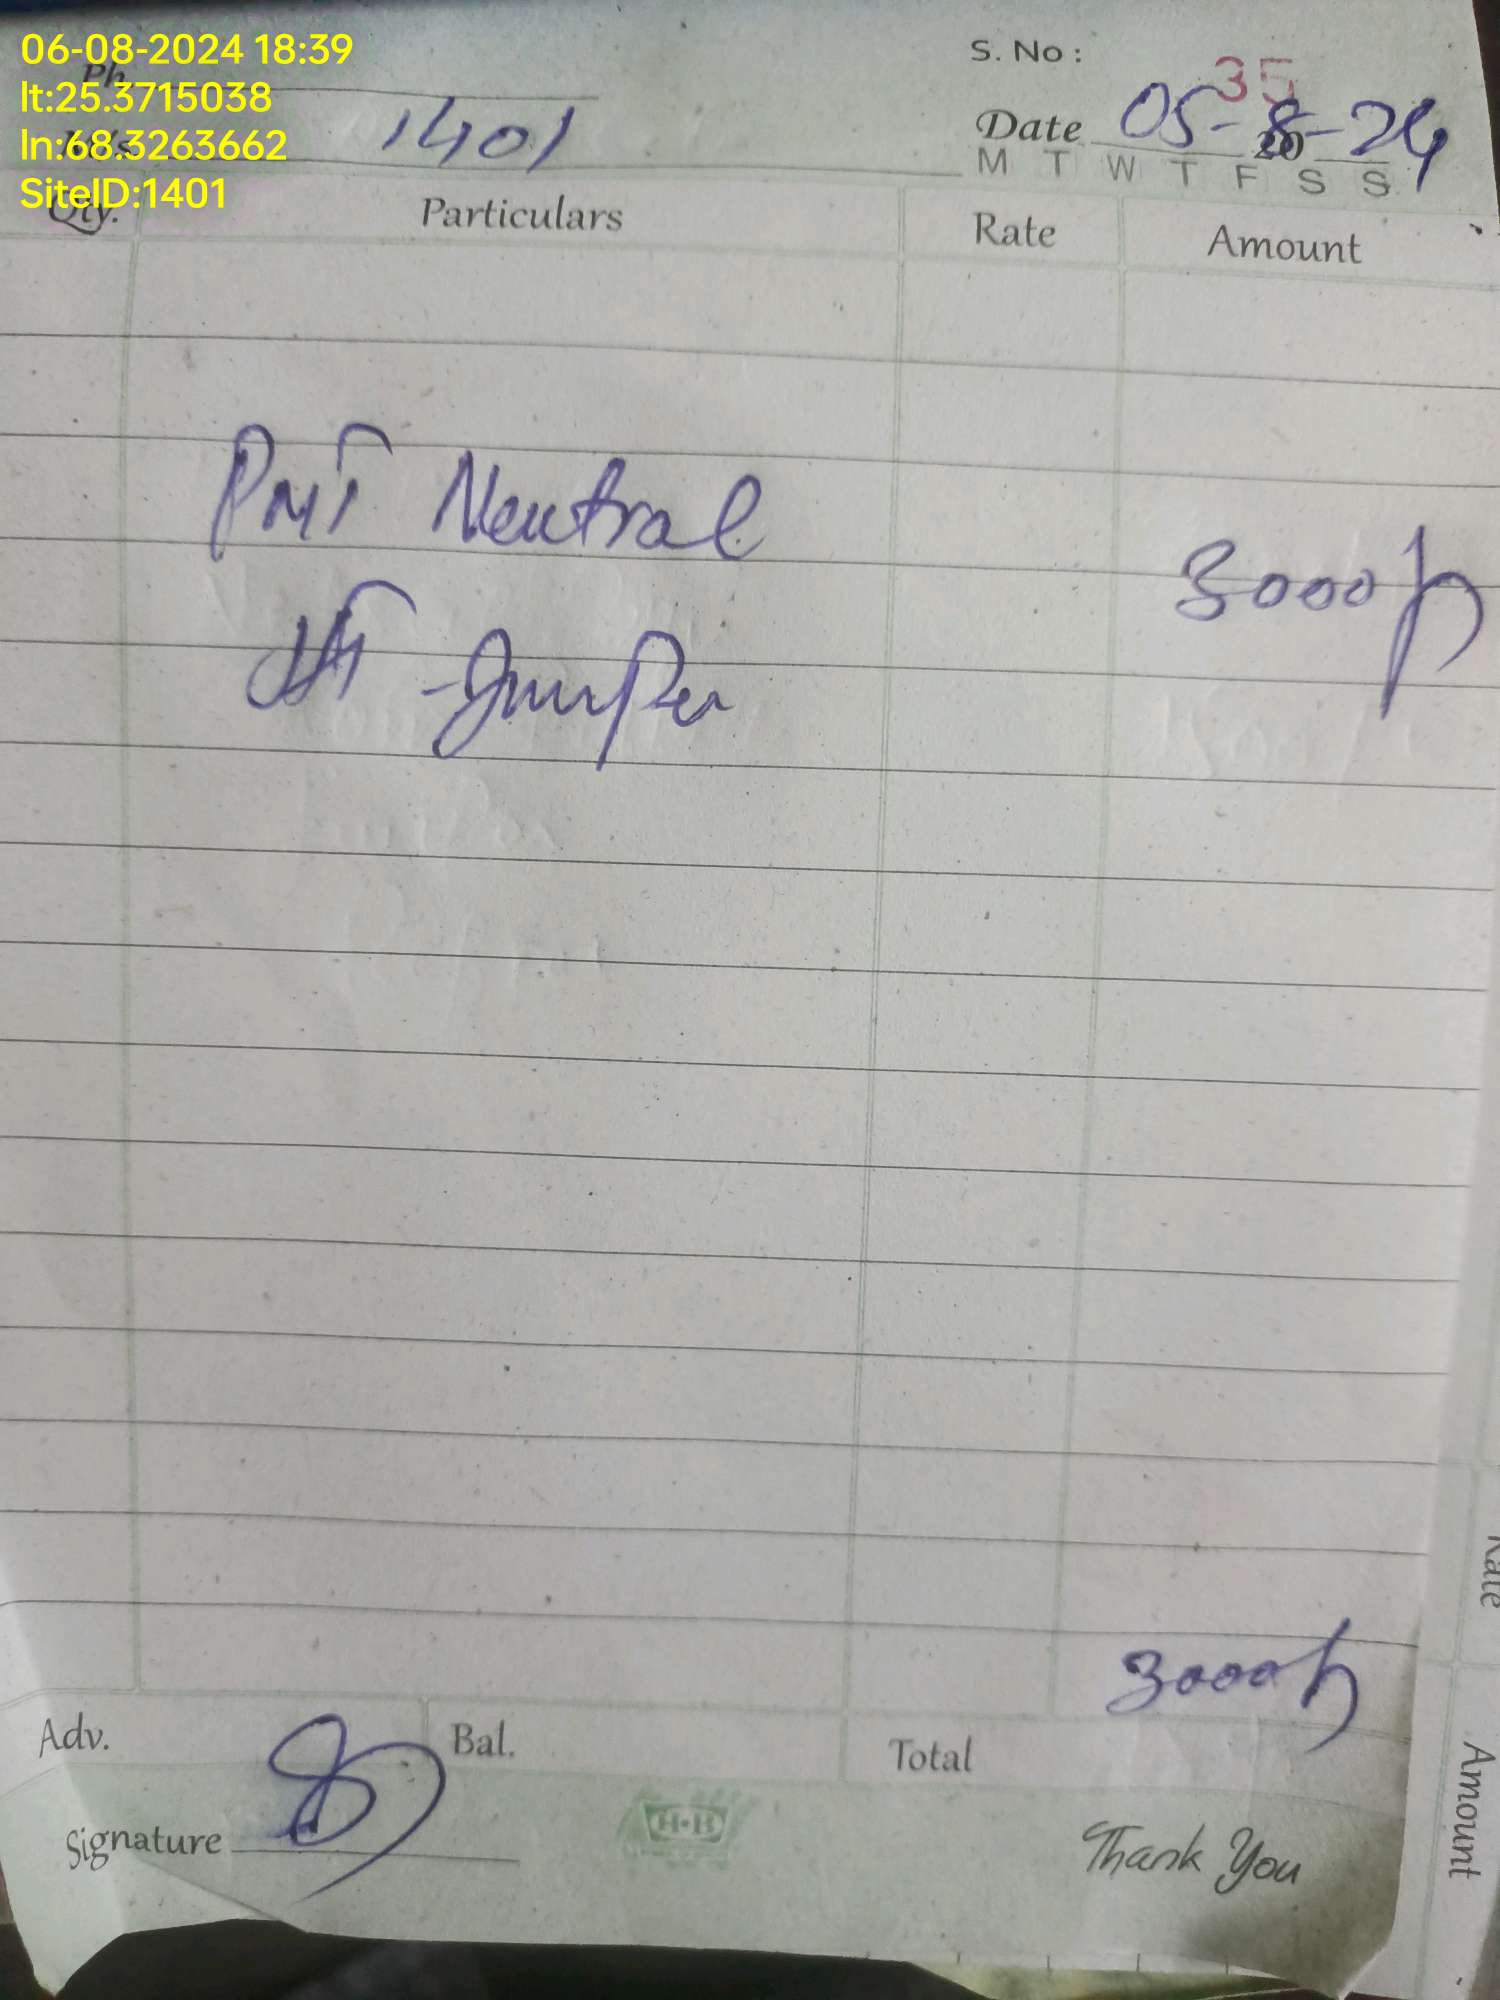 06-08-2024 18:39
lt:25.3715038
ln:68.3263662
SiteID:1401
Ph.
S. No : 35
M/s 1401
Date 05-8-24
20
M T W T F S S
Qty. Particulars Rate Amount
PMT Neutral
3000/-
HT - Jumper
3000/-
Adv. Bal. Total
Signature
H·B
Thank You
Rate
Amount